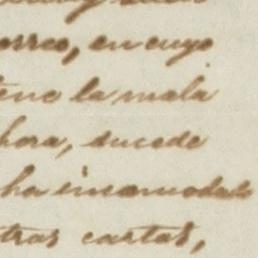 orreo, en cuyo
ene la mala
hora, sucede
ha incomodado
tras cartas,